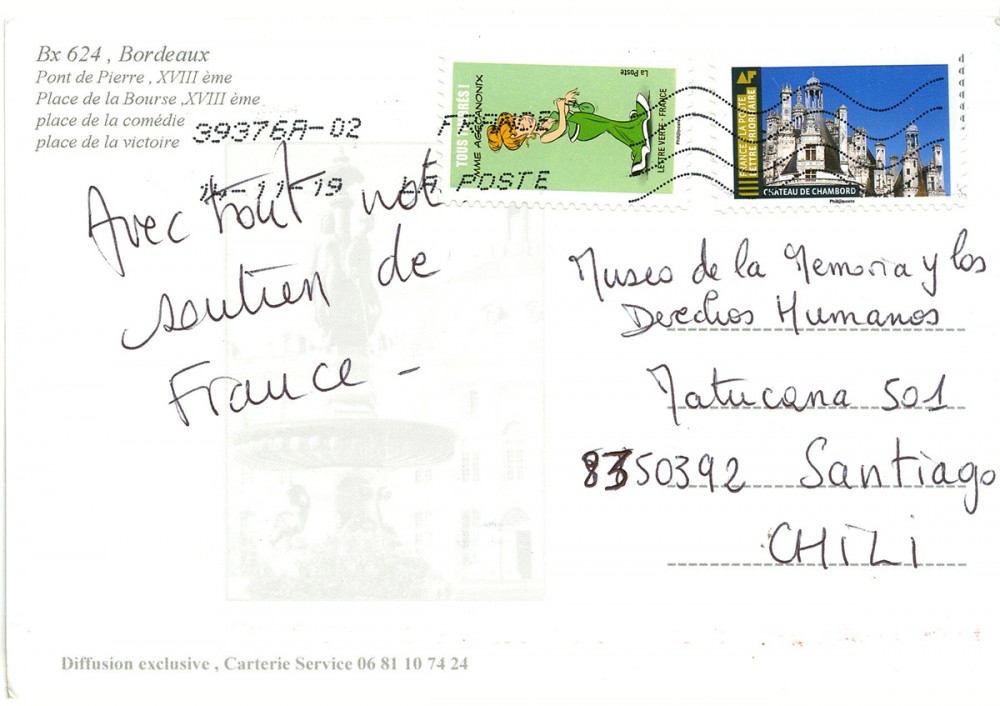 Bx 624 , Bordeaux
Pont de Pierre , XVIII ème
Place de la Bourse ,XVIII ème
place de la comédie
place de la victoire
39376A-02
-11-19
LA POSTE
TOUS TIMBRÉS !
MME AGECANONIX
La Poste
LETTRE VERTE - FRANCE
Phil@poste
AF
FRANCE - LA POSTE
LETTRE PRIORITAIRE
CHATEAU DE CHAMBORD
Phil@poste
Avec tout not
soutien de
France -
Museo de la Memoria y los
Derechos Humanos
Matucana 501
8350392 Santiago
CHILI
Diffusion exclusive , Carterie Service 06 81 10 74 24